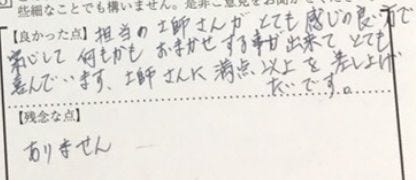 些細なことでも構いません。是非ご意見をお聞かせください
【良かった点】担当の土師さんが とても 感じの良い方で
安心して 何もかも おまかせする事が出来て とても
喜んでいます、土師さんに 満点 以上 を 差し上げ
たいです。
【残念な点】
ありません